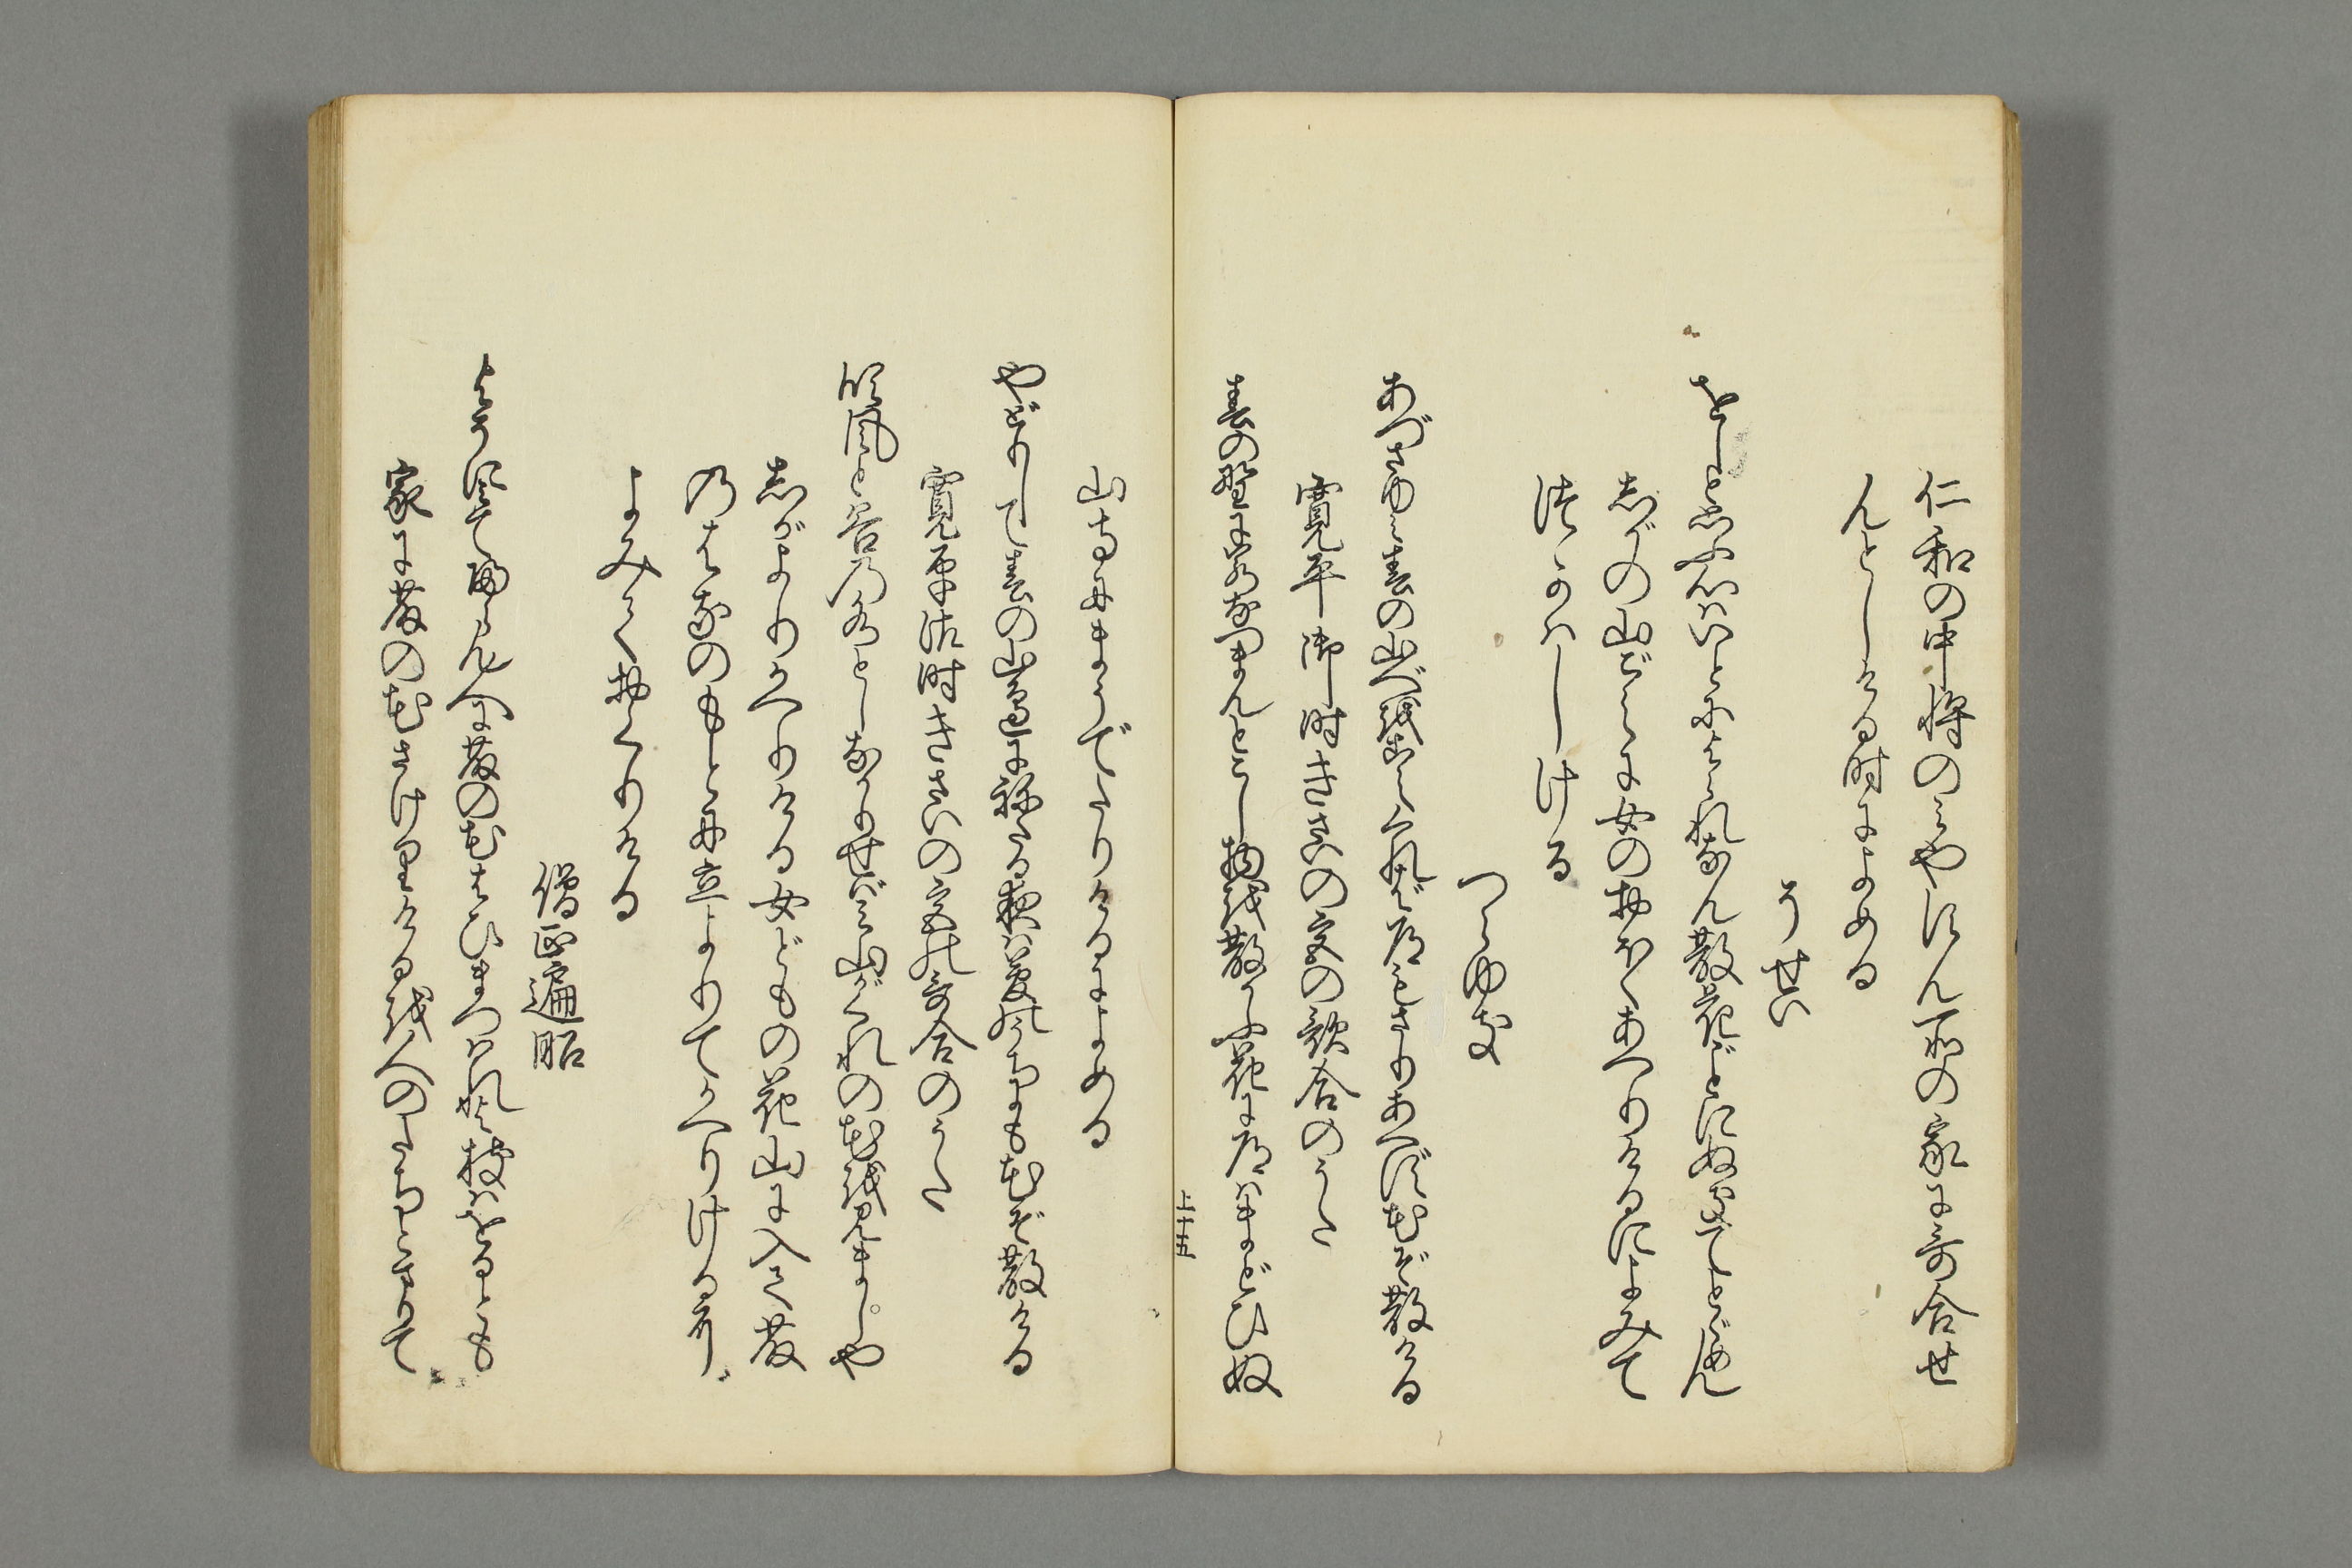 仁和の中将のみやすん所の家に哥合せ
んとしける時によめる
そせい
をしと思ふ心はいとによられなん散花ごとにぬきてとゞめん
志がの山ごえに女のおほくあへりけるによみて
つかはしける
つらゆき
あづさゆみ春の山べを越くれば道もさりあへず花ぞ散ける
寛平御時きさいの宮の歌合のうた
春の野に若なつまんとこし物を散かふ花に道はまどひぬ
上十五
山寺にまうでたりけるによめる
やどりして春の山邉に祢たる夜は夢の内にも花ぞ散ける
寛平御時きさいの宮の哥合のうた
吹風と谷の水としなかりせばみ山がくれの花を見ましや
志がよりかへりける女どもの花山に入て藤
のはなのもとに立よりてかへりけるに
よみておくりける
僧正遍昭
よそに見て帰らん人に藤の花はひまつはれよ枝はをるとも
家に藤の花さけりけるを人のたちとまりて